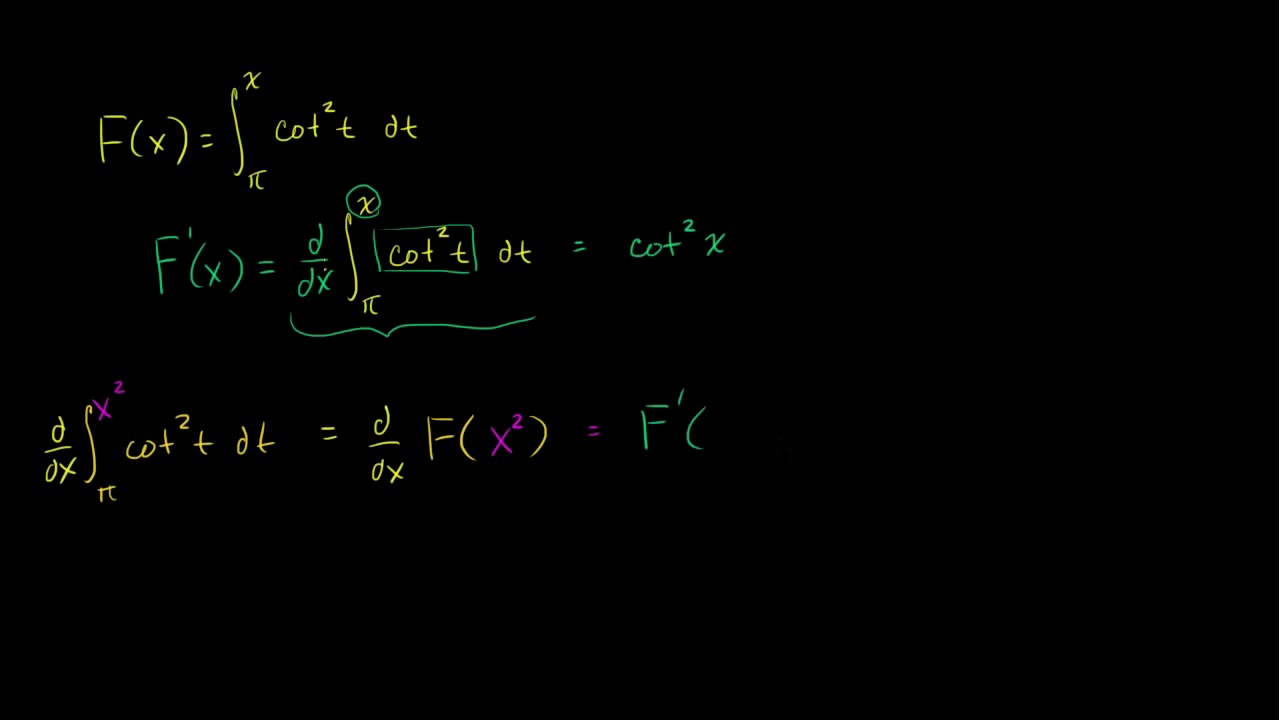 F(x) = ∫_π^x cot² t dt
F'(x) = d/dx ∫_π^x cot² t dt = cot² x
d/dx ∫_π^x² cot² t dt = d/dx F(x²) = F'(